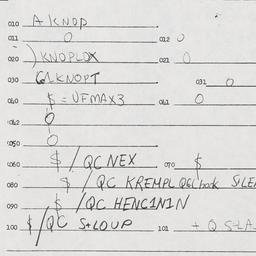 010 A KNOP
011 0 012 0
020 ) KNOPLOX 021 0
030 G1KNOPT 031 0
040 $ = UFMAX3 041 0
042 0
050 0
060 $ / QC NEX 070 $
080 $ / QC KREMPL QGC
090 $ / QC HENC1N1N
100 $ / QC S+LOUP 101 + Q S+LA